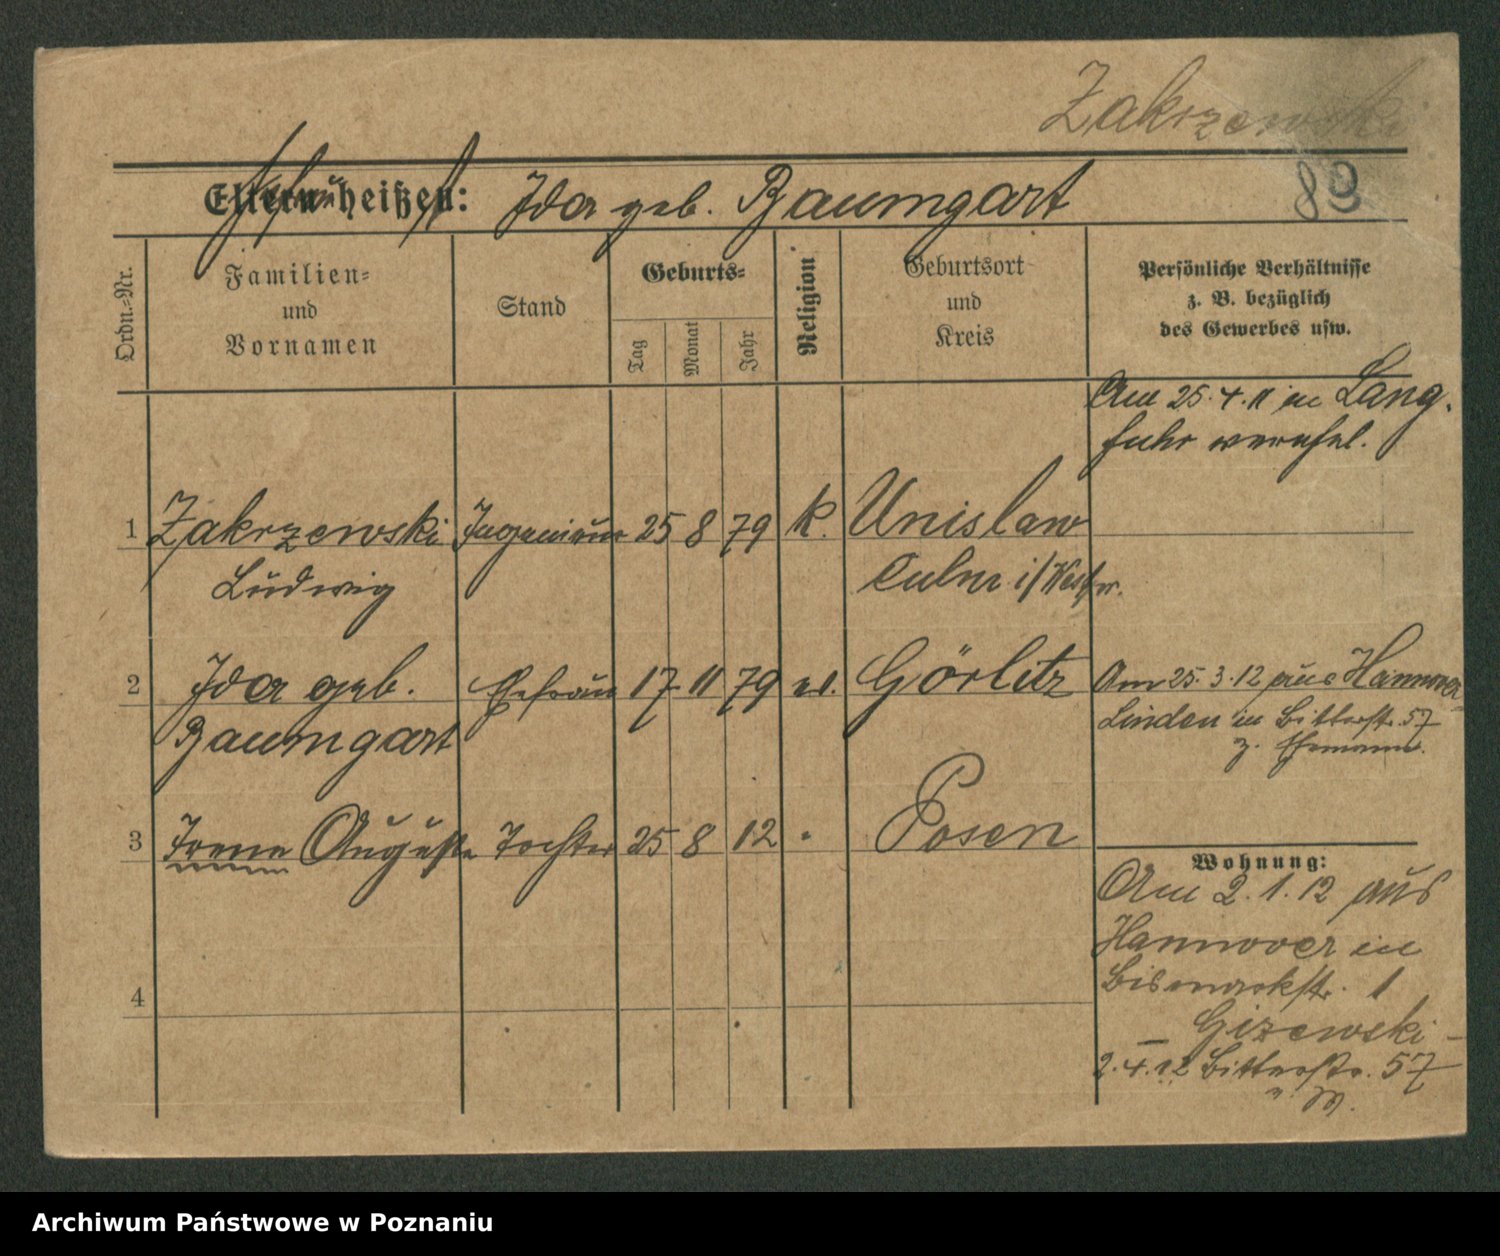 Zakrzewski
Eltern heißen: Ida geb. Baumgart
83
Ordn.=Nr.
Familien=
und
Vornamen
Stand
Geburts=
Tag
Monat
Jahr
Religion
Geburtsort
und
Kreis
Persönliche Verhältnisse
z. B. bezüglich
des Gewerbes usw.
Am 25.4.11 in Lang.
fuhr verehel.
1 Zakrzewski Ingenieur 25 8 79 k. Unislaw
Ludwig Culm i/Westpr.
2 Ida geb. Ehefrau 17 11 79 ev. Görlitz
Baumgart
Am 25.3.12 aus Hannover
Linden in Bitterstr. 57
z. Ehemann.
3 Irene Auguste Tochter 25 8 12 " Posen
Wohnung:
Am 2.1.12 aus
Hannover in
Bismarckstr. 1
Gizewski -
2.4.12 Bitterstr. 57
4
Archiwum Państwowe w Poznaniu